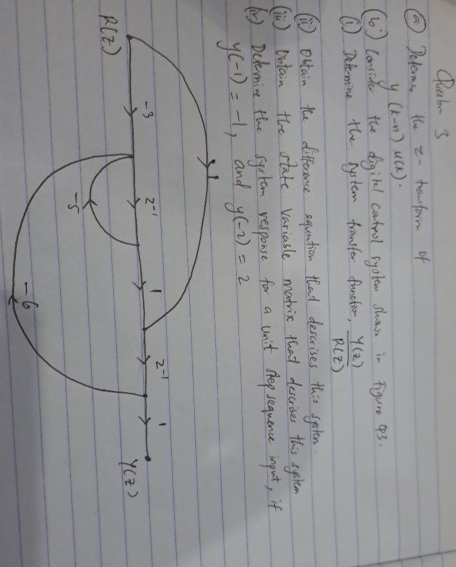 Question 3
(a) Determine the z-transform of
y(k-n)u(k).
(b) Consider the digital control system shown in Figure Q3.
(i) Determine the system transfer function, Y(z)/R(z)
(ii) Obtain the difference equation that describes this system.
(iii) Obtain the state variable matrix that describes this system
(iv) Determine the system response for a unit step sequence input, if
y(-1) = -1, and y(-2) = 2
R(z)
-3
z⁻¹
1
z⁻¹
1
Y(z)
-5
-6
1